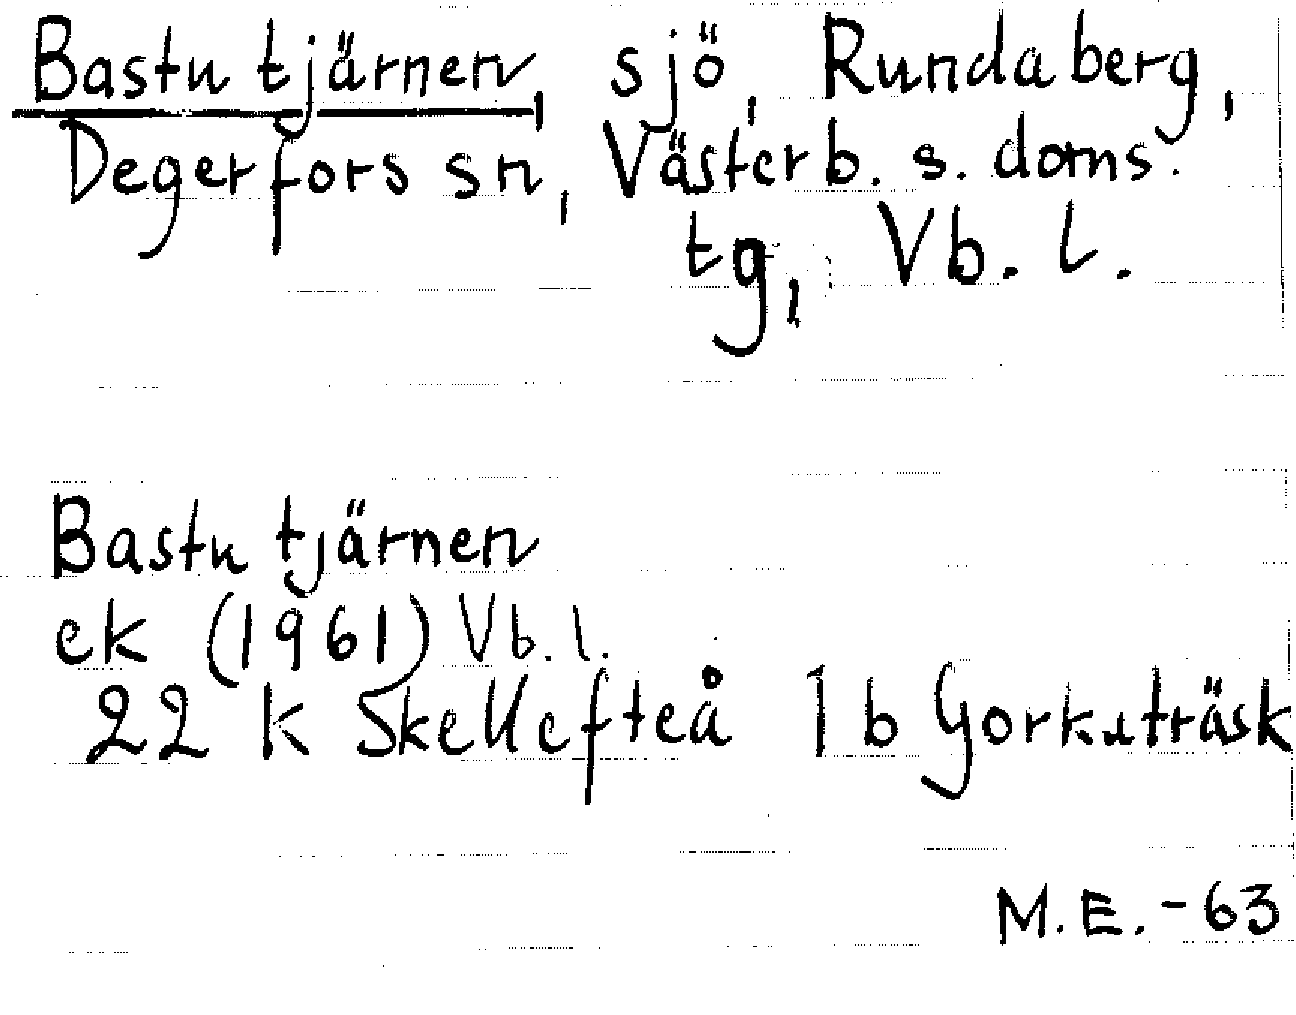 Bastutjärnen, sjö, Rundaberg,
Degerfors sn, Västerb. s. doms.
tg, Vb. l.
Bastutjärnen
ek (1961) Vb. l.
22 k Skellefteå 1 b Gorkuträsk
M.E. -63